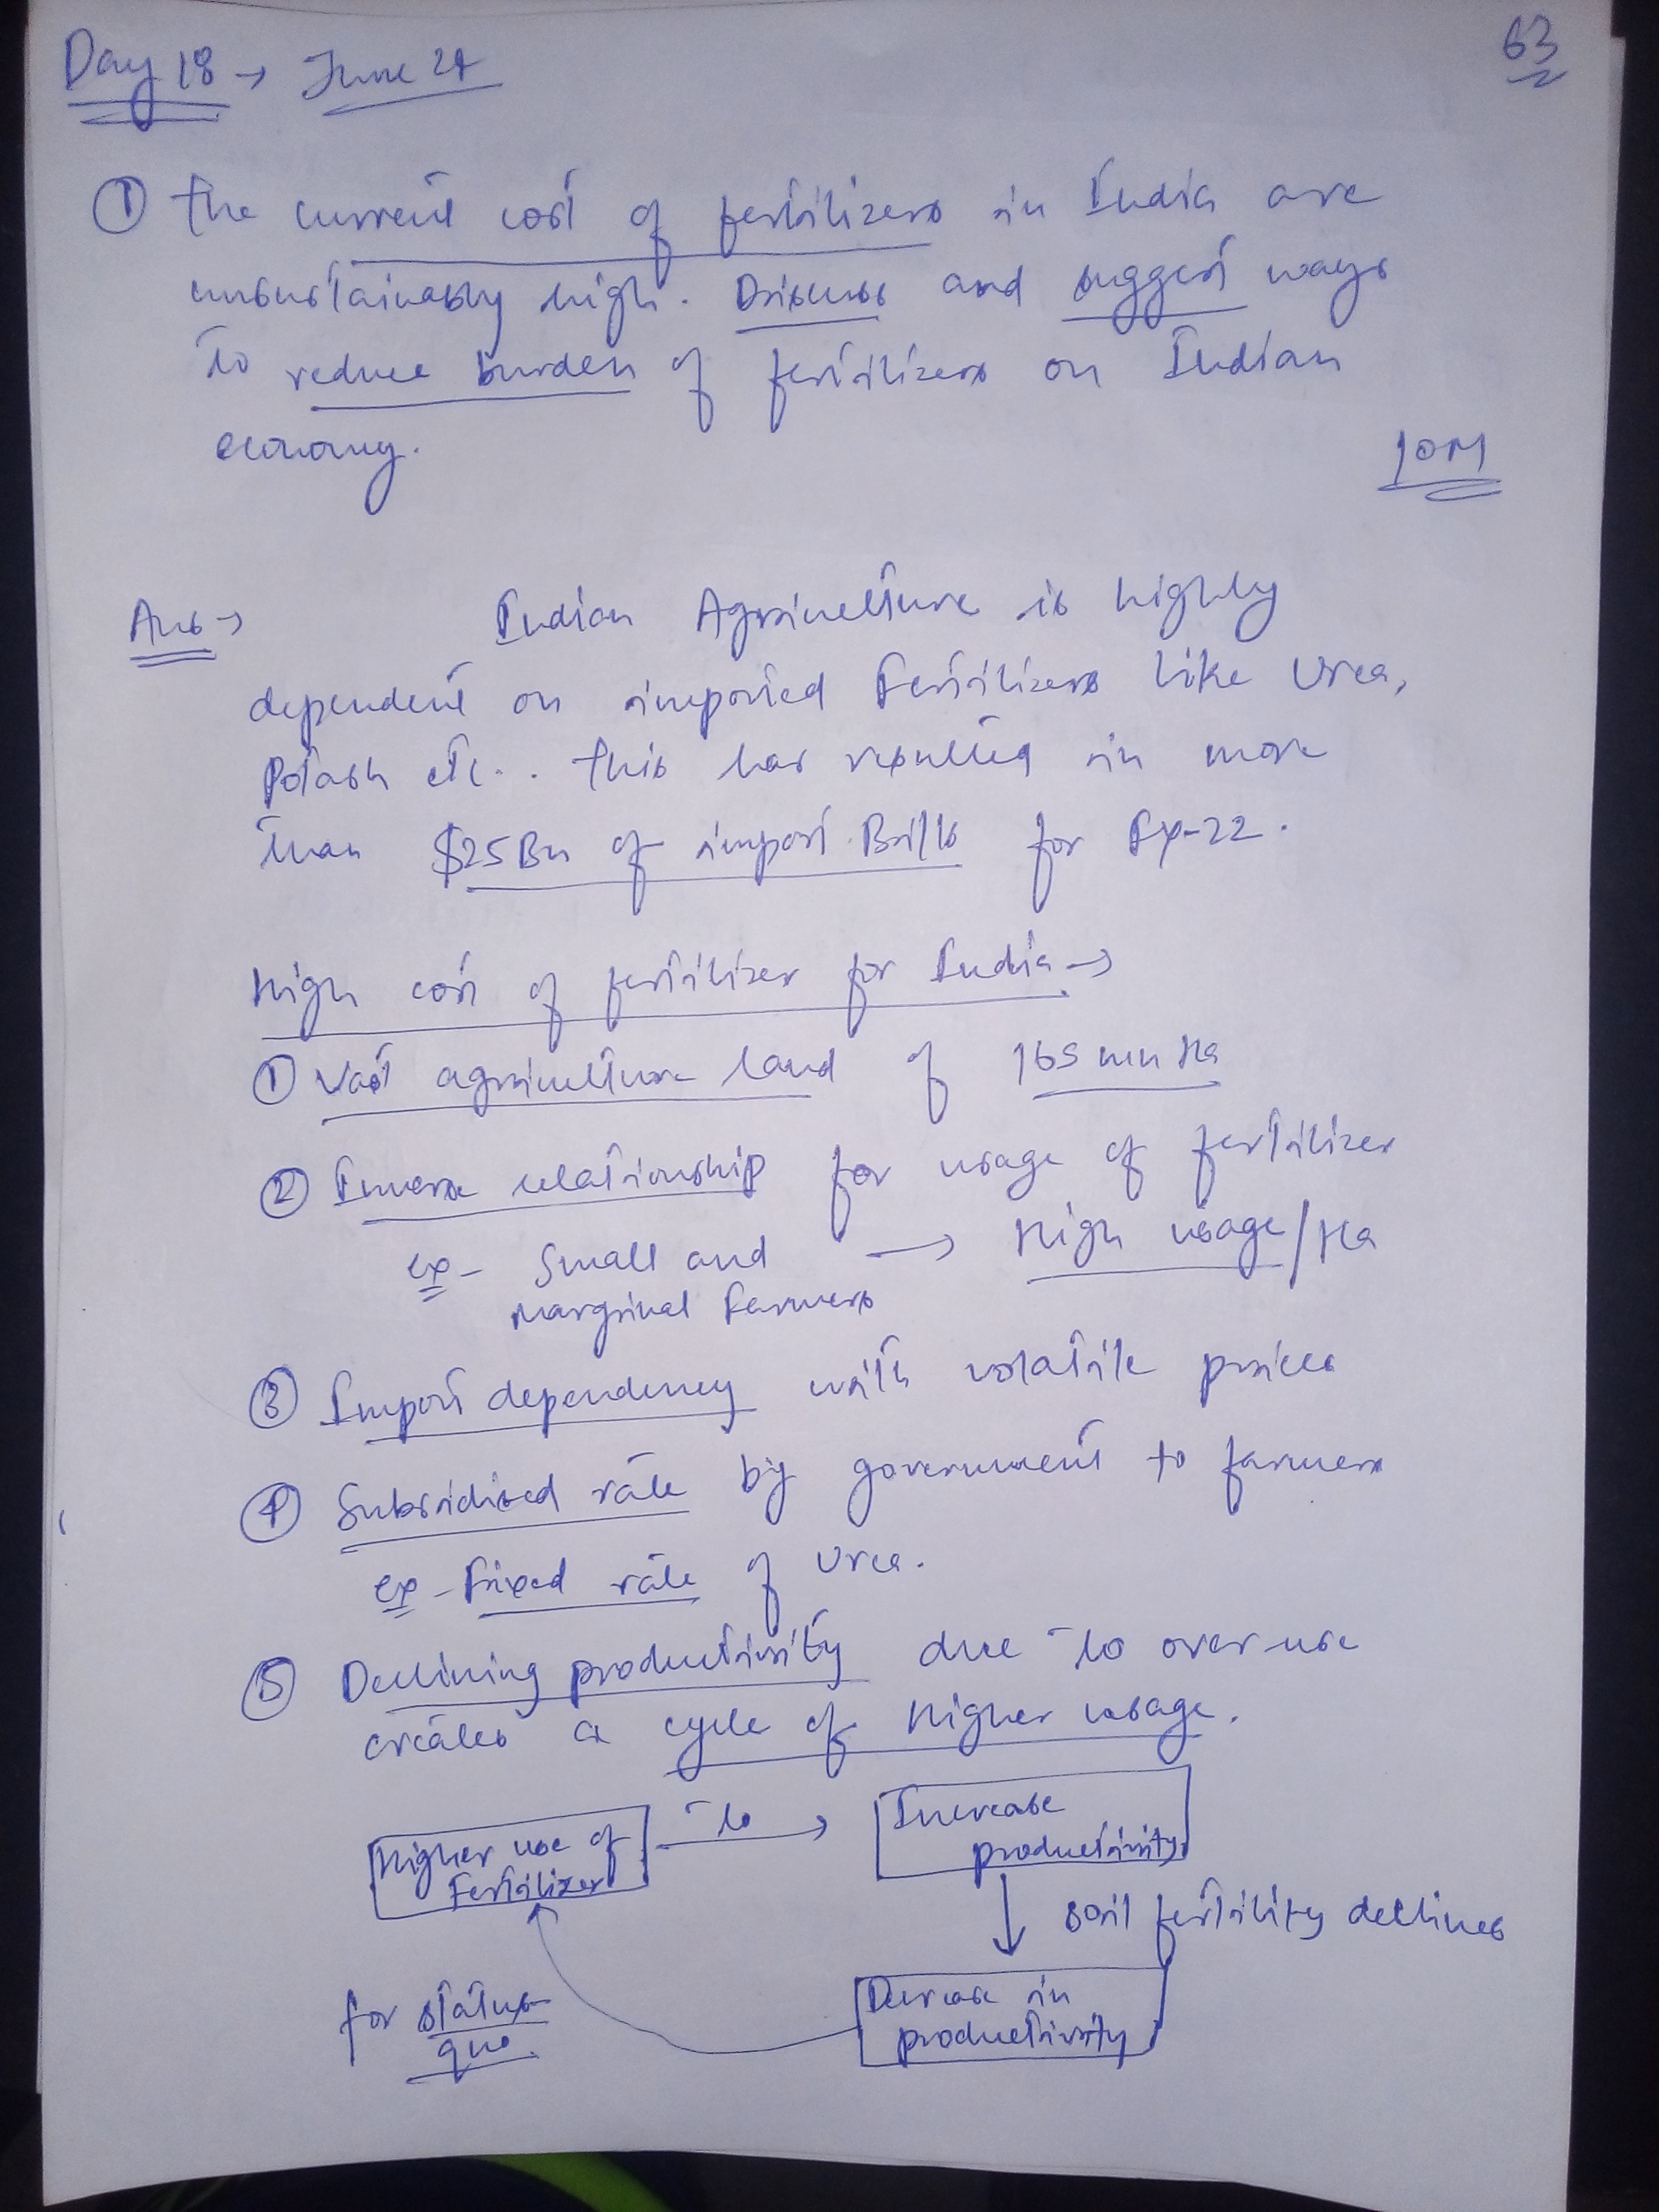 Day 18 → June 24
63
① The current cost of fertilizers in India are
unsustainably high. Discuss and suggest ways
to reduce burden of fertilizers on Indian
economy.
10M
Ans→ Indian Agriculture is highly
dependent on imported Fertilizers like Urea,
Potash etc.. This has resulted in more
than $25Bn of import Bills for FY-22.
High cost of fertilizer for India→
① Vast agriculture land of 165 mn Ha
② Inverse relationship for usage of fertilizer
ex- Small and → High usage/Ha
marginal farmers
③ Import dependency with volatile prices
④ Subsidised rate by government to farmers
ex- Fixed rate of Urea.
⑤ Declining productivity due to over use
creates a cycle of Higher usage.
Higher use of Fertilizer
to →
Increase productivity
↓ soil fertility declines
Decrease in productivity
for status-
quo.